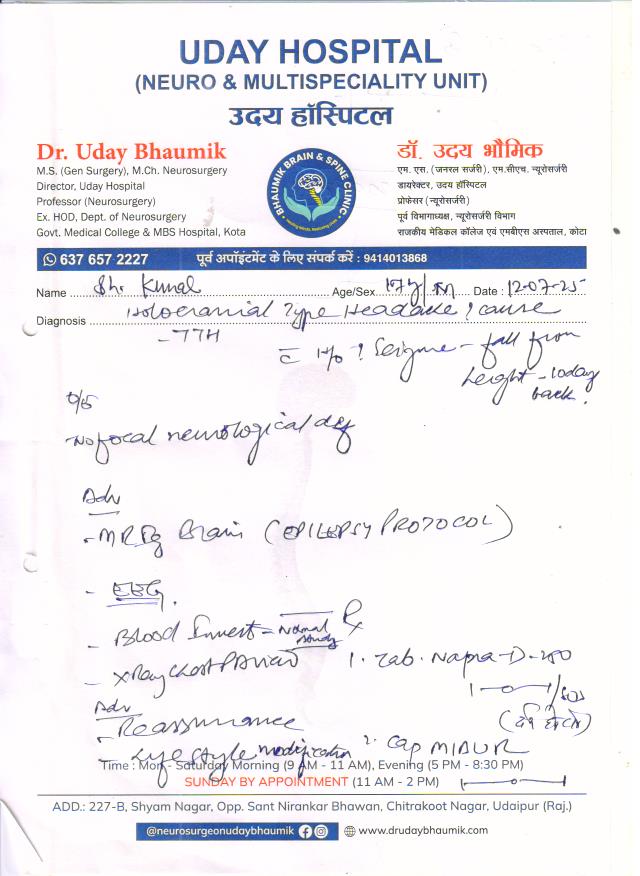 UDAY HOSPITAL
(NEURO & MULTISPECIALITY UNIT)
उदय हॉस्पिटल
Dr. Uday Bhaumik
M.S. (Gen Surgery), M.Ch. Neurosurgery
Director, Uday Hospital
Professor (Neurosurgery)
Ex. HOD, Dept. of Neurosurgery
Govt. Medical College & MBS Hospital, Kota
BHAUMIK BRAIN & SPINE CLINIC
डॉ. उदय भौमिक
एम. एस. (जनरल सर्जरी), एम.सीएच. न्यूरोसर्जरी
डायरेक्टर, उदय हॉस्पिटल
प्रोफेसर (न्यूरोसर्जरी)
पूर्व विभागाध्यक्ष, न्यूरोसर्जरी विभाग
राजकीय मेडिकल कॉलेज एवं एमबीएस अस्पताल, कोटा
637 657 2227 पूर्व अपॉइंटमेंट के लिए संपर्क करें : 9414013868
Name Sh. Kunal Age/Sex 17y/M Date : 12-07-25
Diagnosis Holocranial Type Headache ? cause
- TTH
c̄ H/o ? Seizure - fall from
height - 10 day
back.
O/E
No focal neurological def
Adv
- MRI Brain (EPILEPSY PROTOCOL)
- EEG.
- Blood Invest - Normal Study
Rx
- X Ray Chest PA view
1. Tab. Napra-D-250
1-o-1/SOS
Adv
- Reassurance
- Life style modification
2. Cap MIBUR
Time : Mon - Saturday Morning (9 AM - 11 AM), Evening (5 PM - 8:30 PM)
SUNDAY BY APPOINTMENT (11 AM - 2 PM)
ADD.: 227-B, Shyam Nagar, Opp. Sant Nirankar Bhawan, Chitrakoot Nagar, Udaipur (Raj.)
@neurosurgeonudaybhaumik www.drudaybhaumik.com